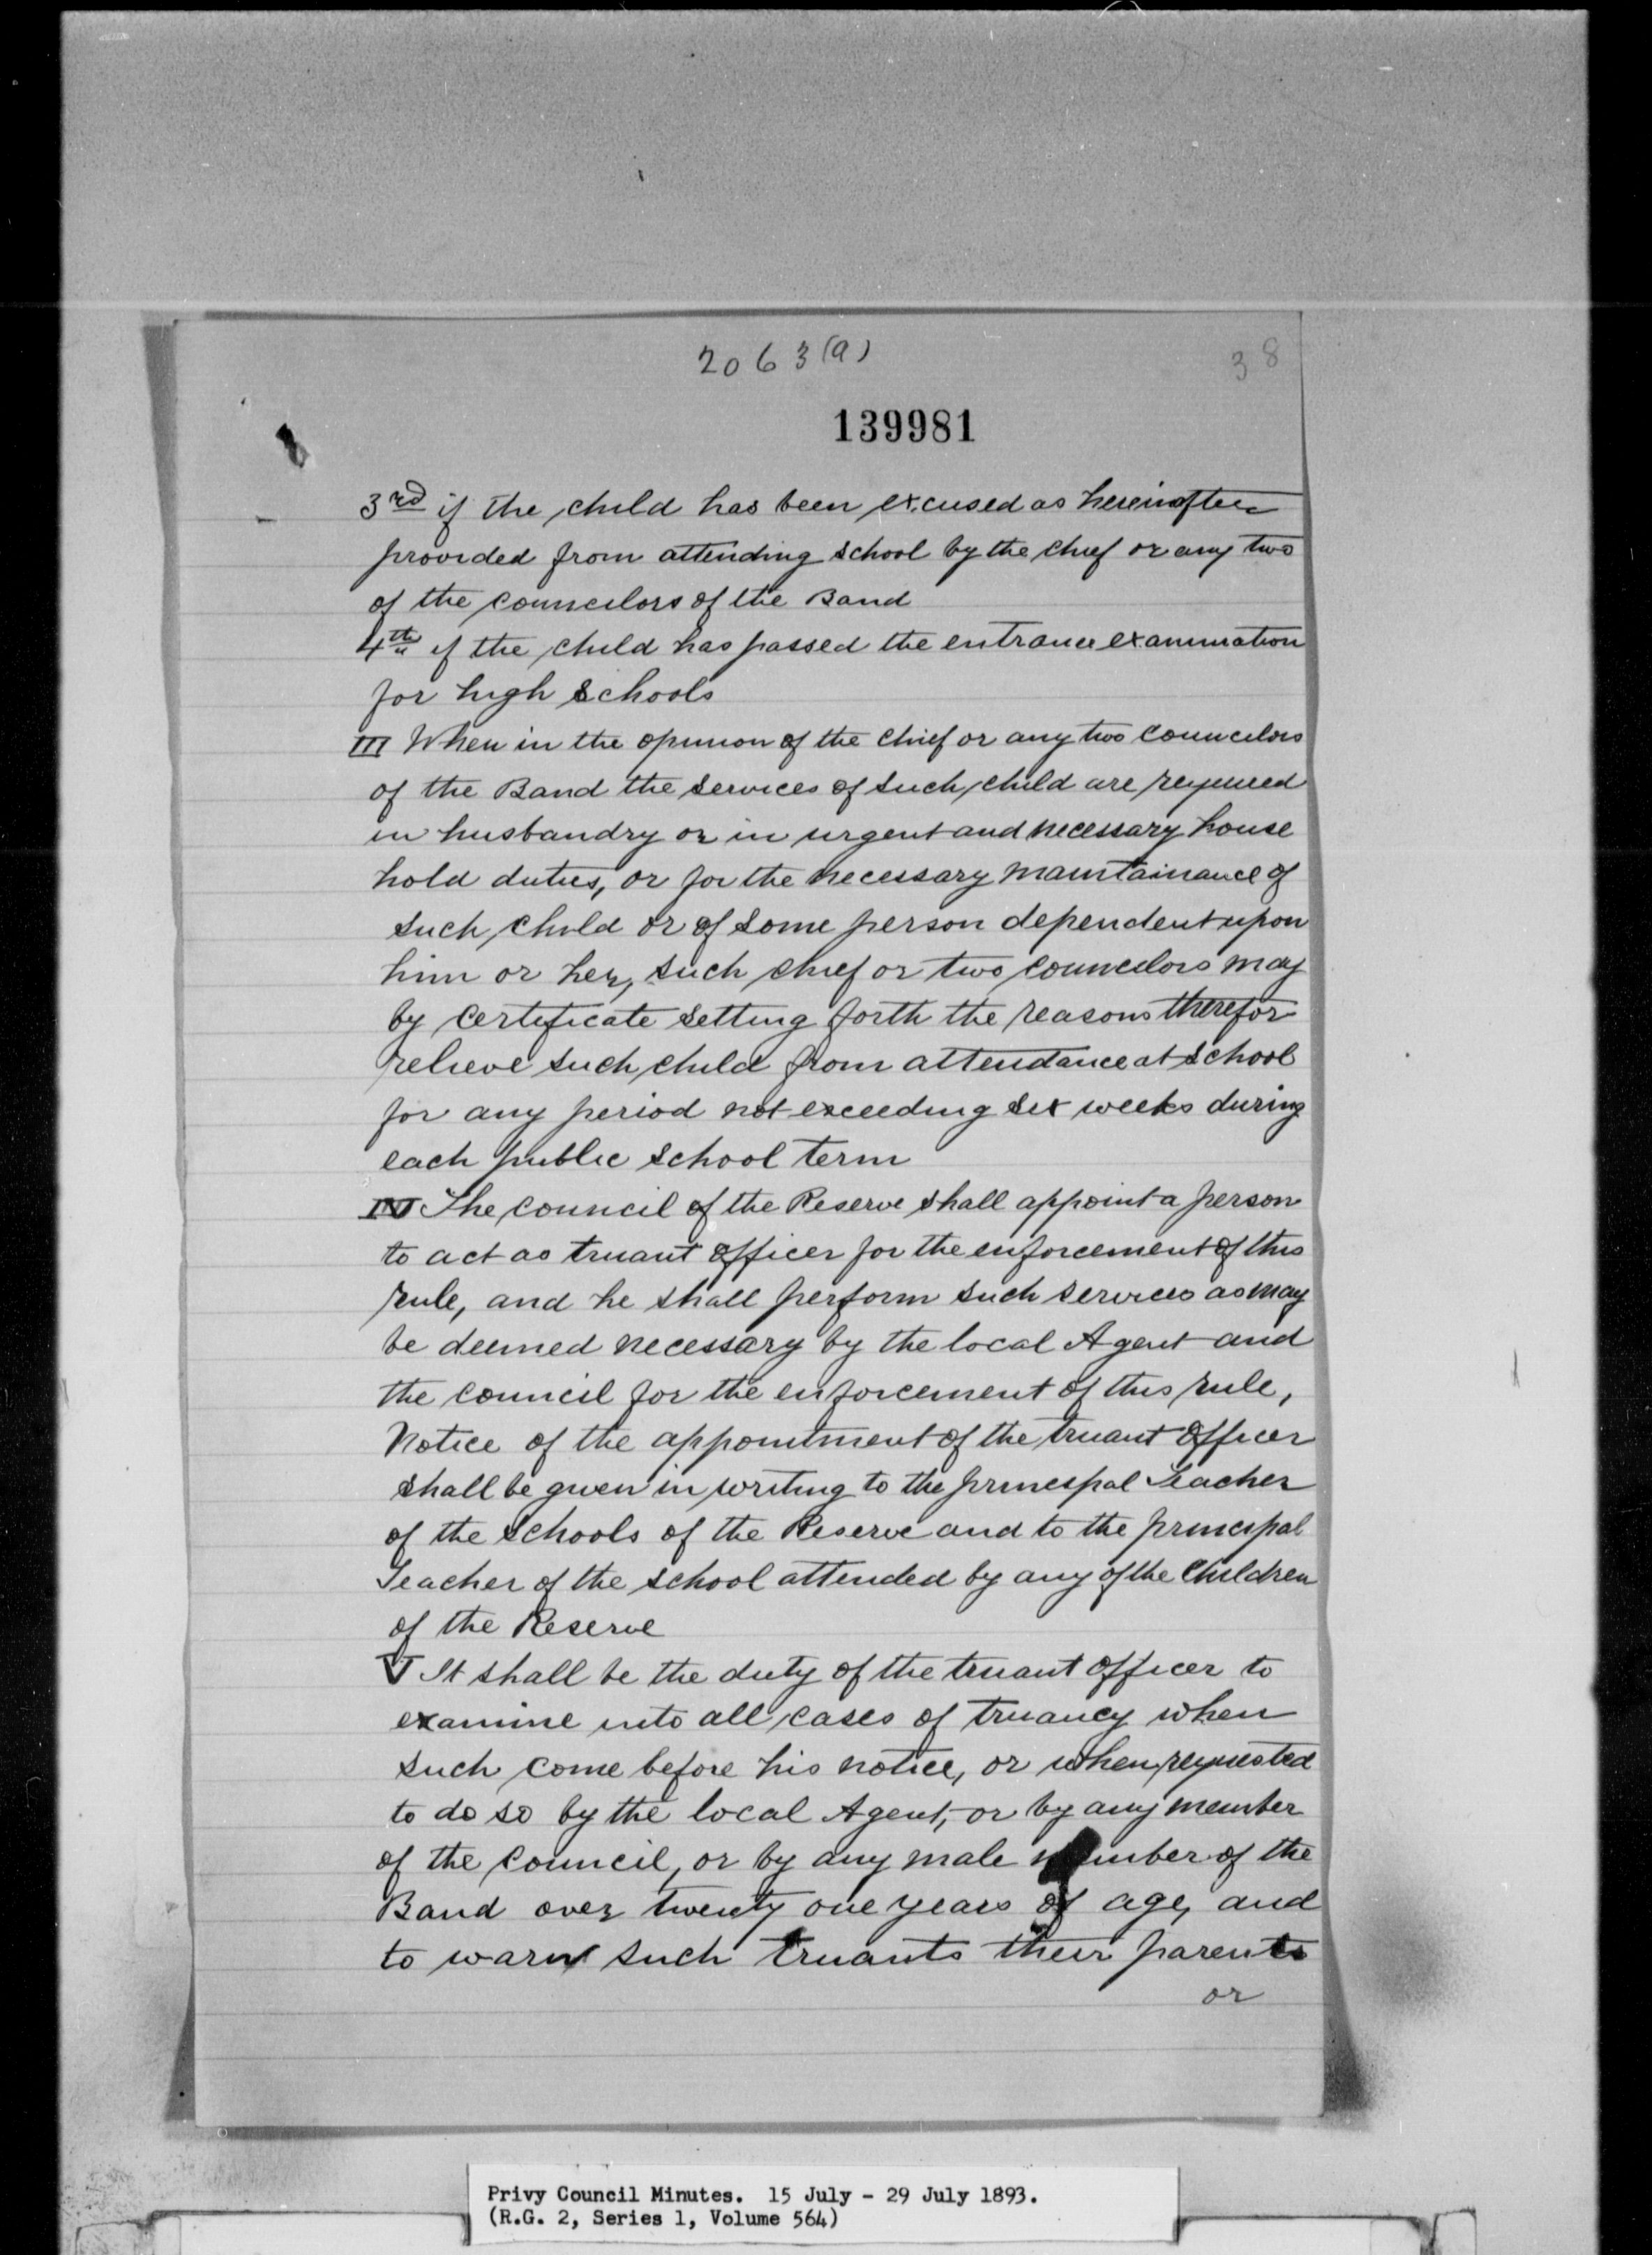 2063(a)
38
139981
3rd if the child has been excused as hereinafter
provided from attending school by the chief or any two
of the councilors of the Band
4th if the child has passed the entrance examination
for high schools
III When in the opinion of the chief or any two councilors
of the Band the services of such child are required
in husbandry or in urgent and necessary house
hold duties, or for the necessary maintainance of
such child or of some person dependent upon
him or her, such chief or two councilors may
by certificate setting forth the reasons therefor
relieve such child from attendance at school
for any period not exceeding six weeks during
each public school term
IV The council of the Reserve shall appoint a person
to act as truant officer for the enforcement of this
rule, and he shall perform such services as may
be deemed necessary by the local Agent and
the council for the enforcement of this rule,
Notice of the appointment of the truant officer
shall be given in writing to the principal Teacher
of the schools of the Reserve and to the principal
Teacher of the school attended by any of the Children
of the Reserve
V It shall be the duty of the truant officer to
examine into all cases of truancy when
such come before his notice, or when requested
to do so by the local Agent, or by any member
of the council, or by any male member of the
Band over twenty one years of age, and
to warn such truants their parents
or
Privy Council Minutes. 15 July - 29 July 1893.
(R.G. 2, Series 1, Volume 564)